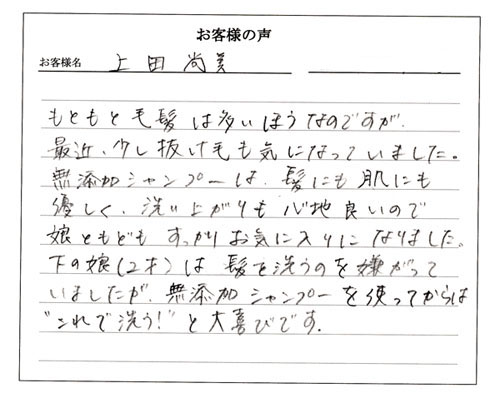 お客様の声
お客様名 上田 尚美
もともと毛髪は多いほうなのですが、
最近、少し抜け毛も気になっていました。
無添加シャンプーは、髪にも肌にも
優しく、洗い上がりも心地良いので
娘ともども すっかりお気に入りになりました。
下の娘(2才)は 髪を洗うのを嫌がって
いましたが、無添加シャンプーを使ってからは
"これで洗う!" と大喜びです.